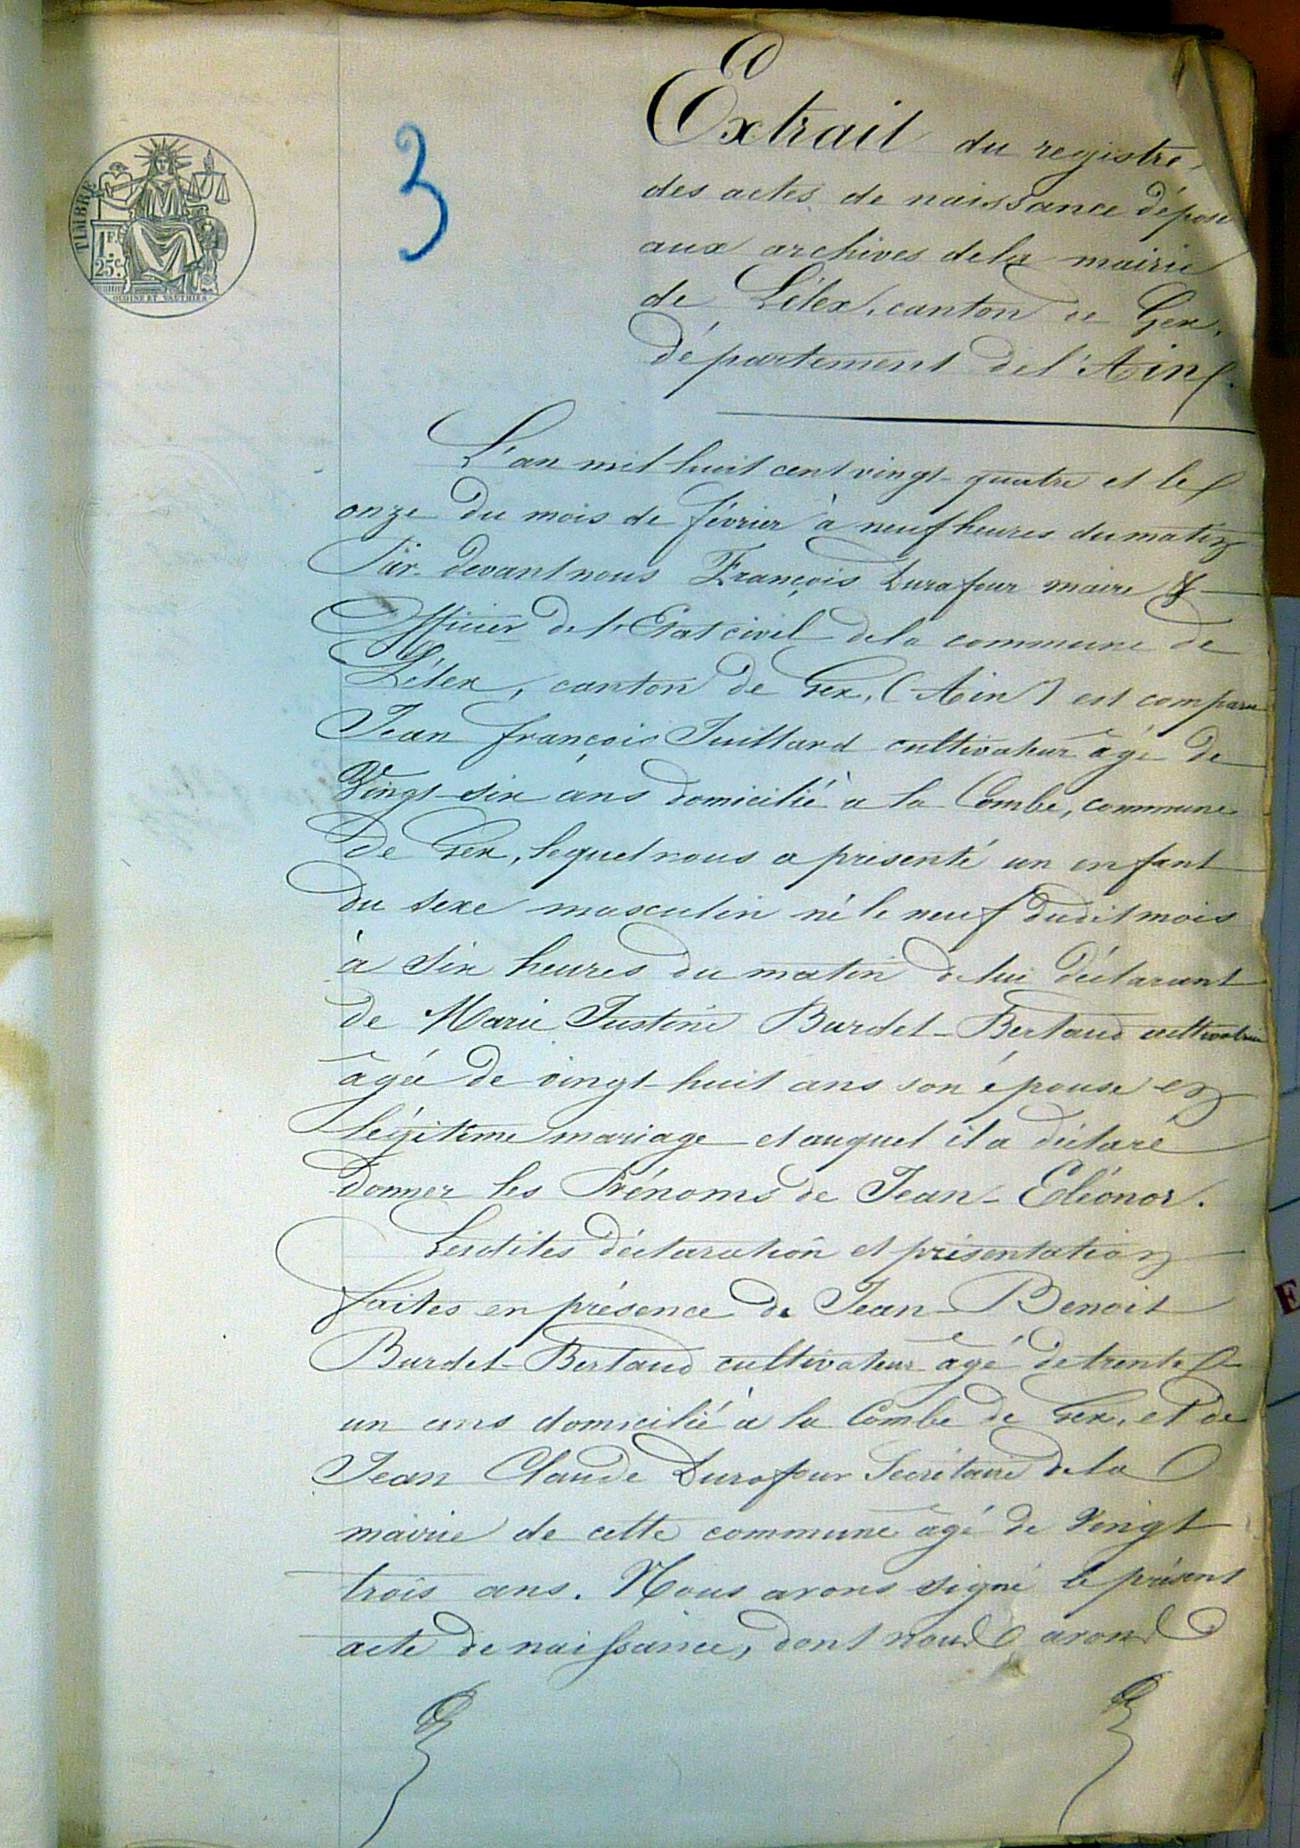 TIMBRE
1F.
25c.
OUDINE ET. VAUTHIER
3
Extrait du registre
des actes de naissance déposé
aux archives de la mairie
de Lélex, canton de Gex,
département de l'Ain.
L'an mil huit cent vingt-quatre et le
onze du mois de février à neuf heures du matin
Par devant nous François Durafour maire &
Officier de l'Etat civil de la commune de
Lélex, canton de Gex, (Ain) est comparu
Jean François Juillard cultivateur âgé de
Vingt-six ans domicilié à la Combe, commune
de Gex, lequel nous a présenté un enfant
du sexe masculin né le neuf dudit mois
à six heures du matin de lui déclarant
de Marie Justine Burdet-Bertaud cultivatrice
âgée de vingt-huit ans son épouse en
légitime mariage et auquel il a déclaré
donner les Prénoms de Jean-Eléonor.
Lesdites déclaration et présentation
faites en présence de Jean-Benoit
Burdet-Bertaud cultivateur âgé de trente
un ans domicilié à la Combe de Gex, et de
Jean Claude Durafour Secrétaire de la
mairie de cette commune âgé de Vingt
trois ans. Nous avons signé le présent
acte de naissance, dont nous avons